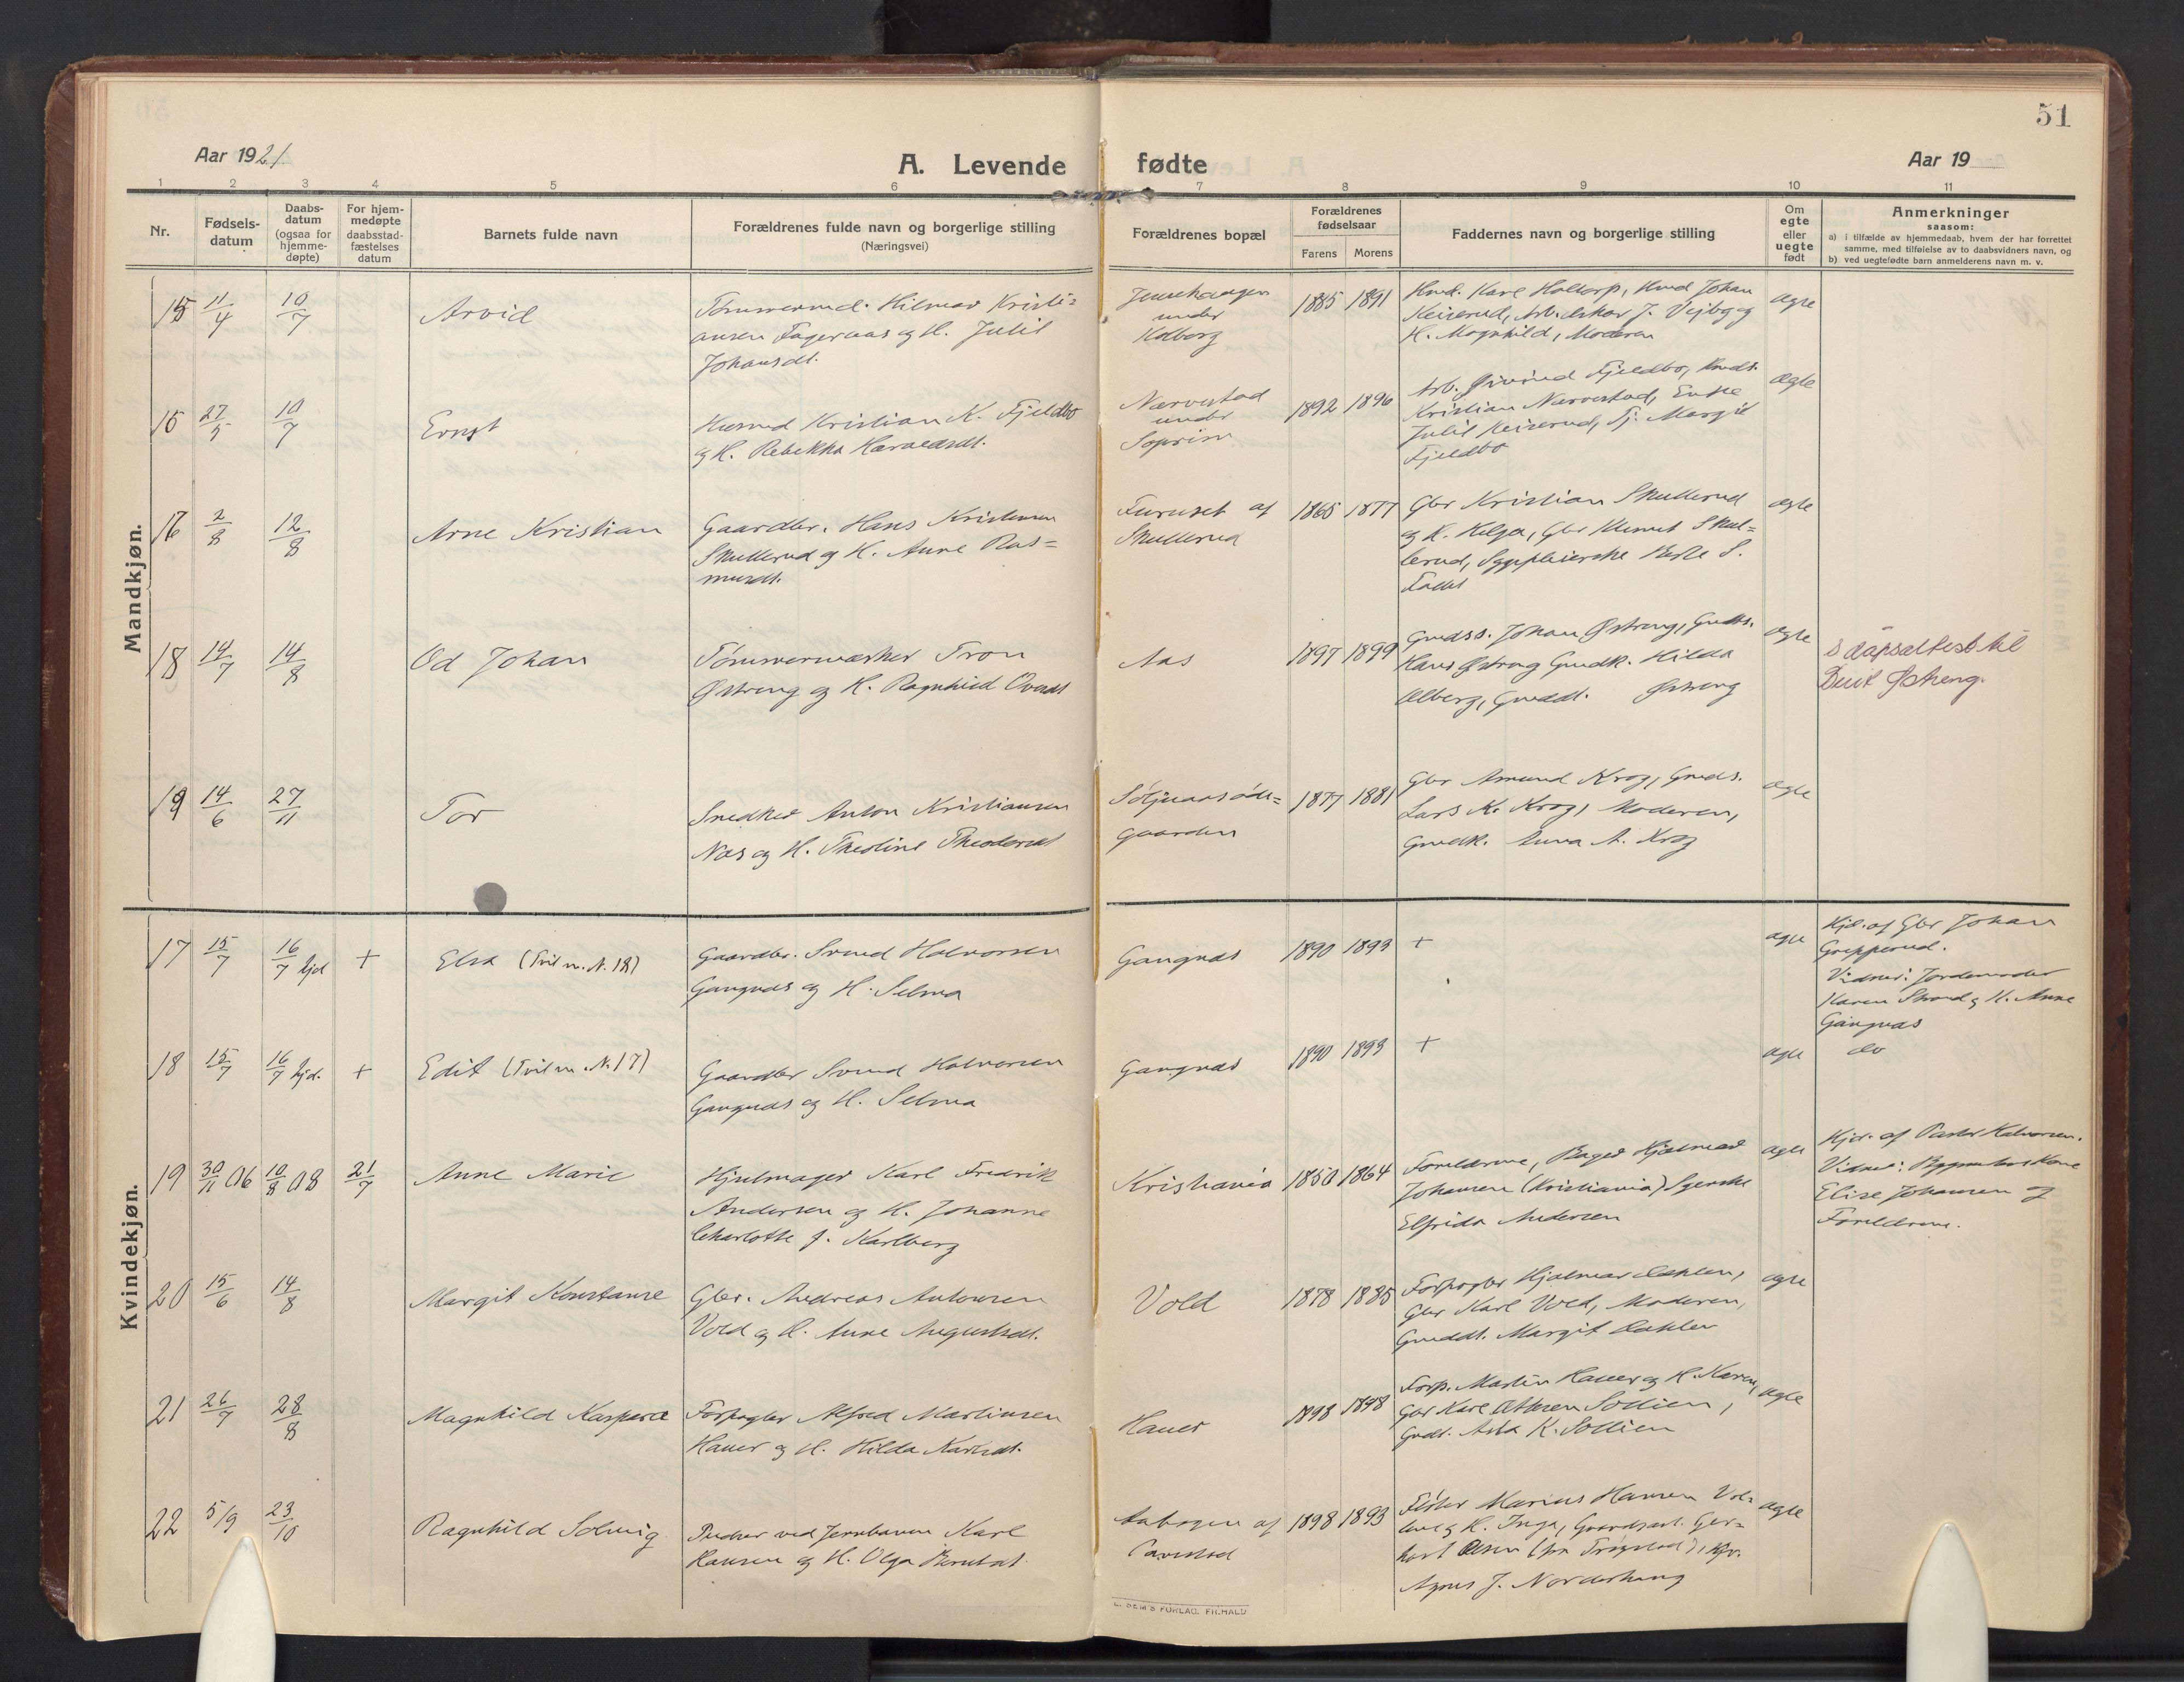 51
Aar 1921
A. Levende fødte
Aar 19
1 2 3 4 5 6 7 8 9 10 11
Nr.
Fødsels-
datum
Daabs-
datum
(ogsaa for
hjemme-
døpte)
For hjem-
medøpte
daabsstad-
fæstelses
datum
Barnets fulde navn
Forældrenes fulde navn og borgerlige stilling
(Næringsvei)
Forældrenes bopæl
Forældrenes
fødselsaar
Farens Morens
Faddernes navn og borgerlige stilling
Om
egte
eller
uegte
født
Anmerkninger
saasom:
a) i tilfælde av hjemmedaab, hvem der har forrettet
samme, med tilføielse av to daabsvidners navn, og
b) ved uegtefødte barn anmelderens navn m. v.
Mandkjøn.
15 11/4 10/7 Arvid
Tømmermd. Hilmar Kristi=
ansen Fageraas og H. Julie
Johansdt.
under
Kolberg
1885 1891
Hmd. Karl Holtorp, Hmd Johan
Keiserud, Arb. Oskar J. Vejbg og
H. Magnhild, Moderen
ægte
16 27/5 10/7 Ernst
Husmd Kristian K. Fjeldbo
og H. Rebekka Haraldsdt.
Narvestad
under
1892 1896
Arb. Øivind Fjeldbo, Hmds.
Kristian Narvestad, Enke
Julie Keiserud, Tj. Margit
Fjeldbo
ægte
17 2/8 12/8 Arne Kristian
Gaardbr. Hans Kristensen
Skullerud og H. Anne Ras=
musdt.
Furuset af
Skullerud
1865 1877
Gbr Kristian Skullerud
og H. Helga, Gbr Klemet Skul=
lerud, Sygepleierske S.
ægte
18 14/7 14/8 Od Johan
Tømmermerker Tron
Østreng og H. Ragnhild Ovedt
Aas
1897 1899
Gmdss. Johan Østreng, Gmds.
Hans Østreng Gmdk. Hilda
Olberg, Gmddt. Østreng
ægte
dåpsattest til
Østreng.
19 14/6 27/11 Tor
Snedker Anton Kristiansen
Næs og H. Theoline Theodorsdt
Søljeaasøde=
gaarden
1877 1881
Gbr Amund Krog, Gmds.
Lars K. Krog, Moderen,
Gmdk. Anna A. Krog
ægte
Kvindekjøn.
17 15/7 16/7 hjd + Elsa (Tvil m. N. 18)
Gaardbr. Svend Halvorsen
Gangnæs og H. Selma
Gangnæs
1890 1893 +
ægte
Hjd. af Gbr Johan
Grepperud.
Vidner: Jordemoder
Karen Strand og H. Anne
Gangnæs
18 15/7 16/7 hjd. + Edit (Tvil m. N. 17)
Gaardbr Svend Halvorsen
Gangnæs og H. Selma
Gangnæs
1890 1893 +
ægte do
19 30/11 06 10/8 08 21/7 Anne Marie
Hjulmager Karl Fredrik
Andersen og H. Johanne
Charlotte f. Karlberg
Kristiania
1850 1864
Foreldrene, Bager Hjalmar
Johansen (Kristiania) Syerske
Elfrida Andersen
ægte
Hjd. af Pastor Halvorsen.
Vidner: Kone
Elise Johansen og
Foreldrene.
20 15/6 14/8 Margit Konstanse
Gbr. Andreas Antonsen
Vold og H. Anne Augustsdt.
Vold
1878 1885
Forpagter Hjalmar Dahlen,
Gbr Karl Vold, Moderen,
Gmddt. Margit Dahlen
ægte
21 26/7 28/8 Magnhild Kaspara
Forpagter Alfred Martinsen
Hauer og H. Hilda Karlsdt.
Hauer
1898 1898
Forp. Martin Hauer og H. Karen,
Gbr Karl Sollien,
Gmdt. Asta K. Sollien
ægte
22 5/9 23/10 Ragnhild Solveig
Pudser ved Jernbanen Karl
Hansen og H. Olga Berntsdt.
Aabogen af
1898 1893
Fløter Marius Hansen
og H. Inga, Gaardsarb. Ger=
hart Olsen (fra Trøgstad),
Agnes J. Norderhaug
ægte
E. SEM'S FORLAG. F.HALD